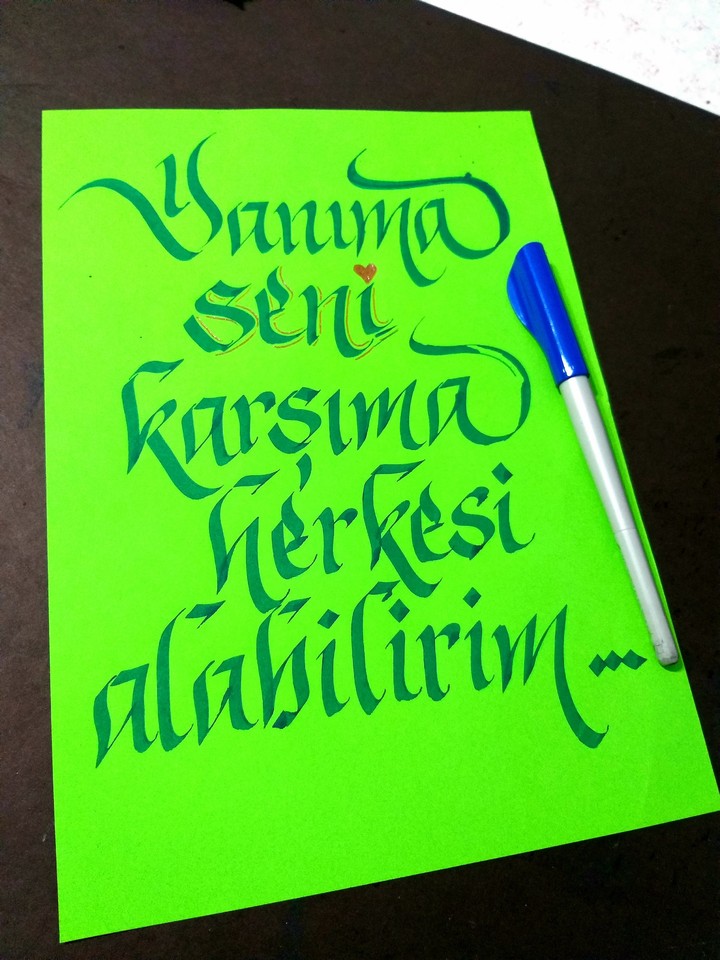 Yanıma
seni
karşıma
herkesi
alabilirim...